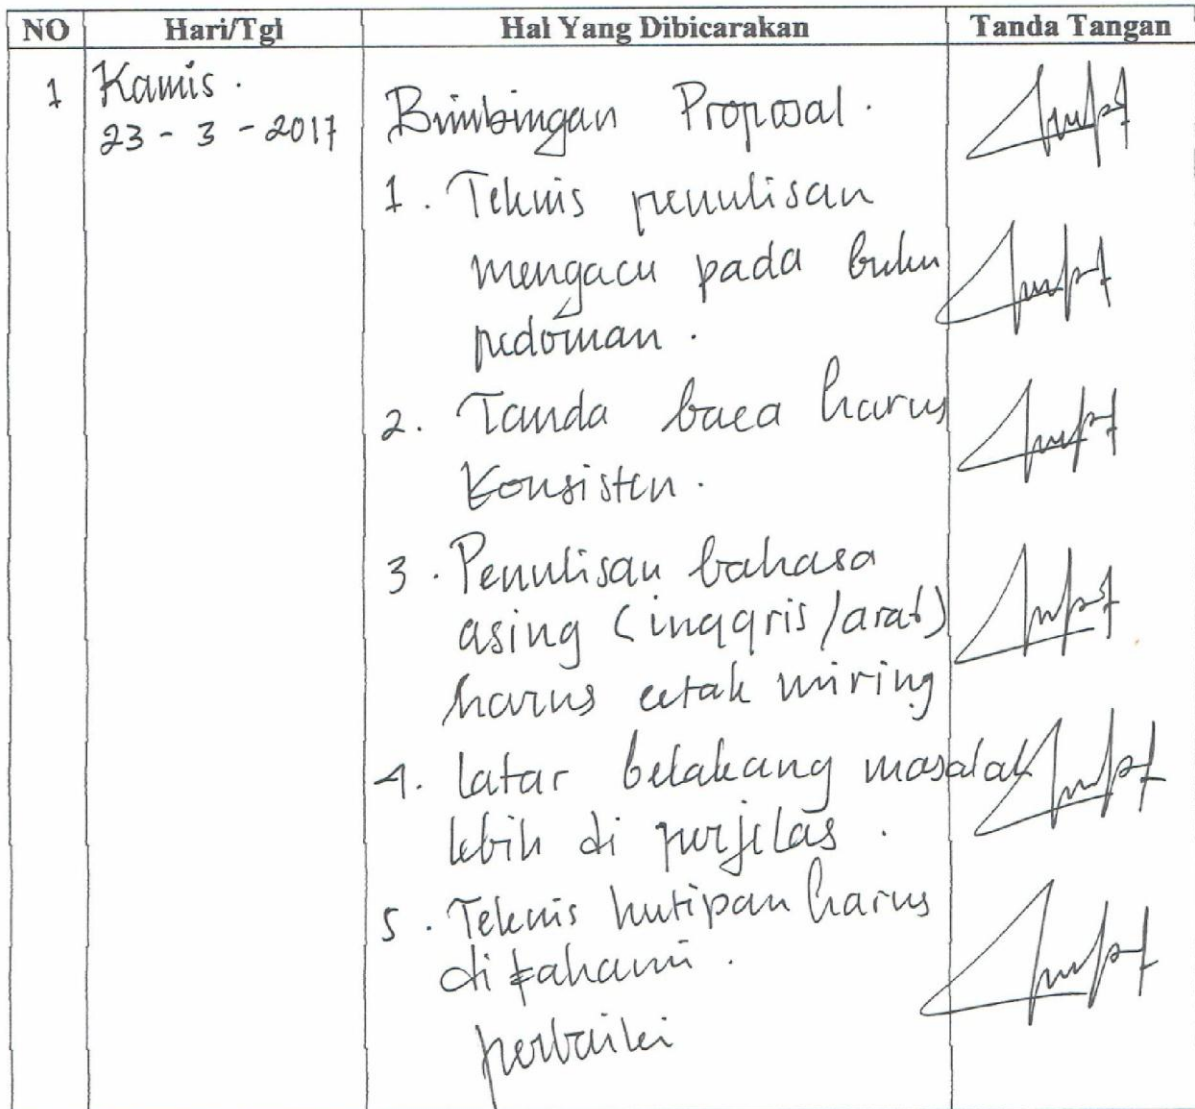 NO Hari/Tgl Hal Yang Dibicarakan Tanda Tangan
1 Kamis.
23 - 3 - 2017
Bimbingan Proposal.
1. Teknis penulisan
mengacu pada buku
pedoman.
2. Tanda baca harus
Konsisten.
3. Penulisan bahasa
asing (inggris/arab)
harus cetak miring
4. latar belakang masalah
lebih di perjelas.
5. Teknis kutipan harus
di fahami.
perbaiki